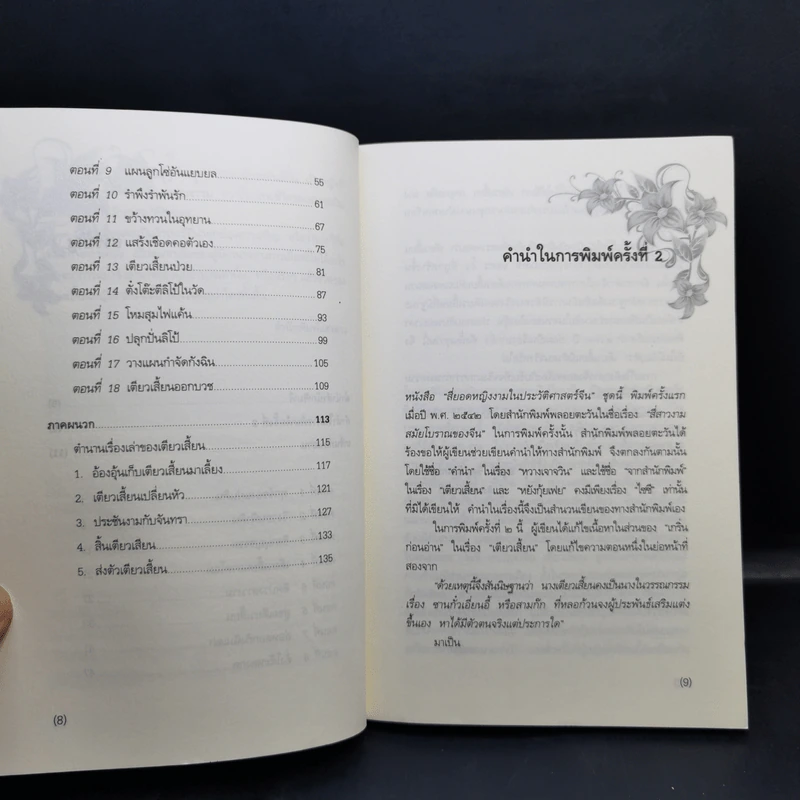 ตอนที่ 9 แผนลูกโซ่อันแยบยล 55
ตอนที่ 10 รำพึงรำพันรัก 61
ตอนที่ 11 ขว้างทวนในอุทยาน 67
ตอนที่ 12 แสร้งเชือดคอตัวเอง 75
ตอนที่ 13 เตียวเสี้ยนป่วย 81
ตอนที่ 14 ตั๋งโต๊ะตีลิโป้ในวัด 87
ตอนที่ 15 โหมสุมไฟแค้น 93
ตอนที่ 16 ปลุกปั่นลิโป้ 99
ตอนที่ 17 วางแผนกำจัดกังฉิน 105
ตอนที่ 18 เตียวเสี้ยนออกบวช 109
ภาคผนวก 113
ตำนานเรื่องเล่าของเตียวเสี้ยน 115
1. อ้องอุ้นเก็บเตียวเสี้ยนมาเลี้ยง 117
2. เตียวเสี้ยนเปลี่ยนหัว 121
3. ประชันงามกับจันทรา 127
4. สิ้นเตียวเสียน 133
5. ส่งตัวเตียวเสี้ยน 135
(8)
คำนำในการพิมพ์ครั้งที่ 2
หนังสือ "สี่ยอดหญิงงามในประวัติศาสตร์จีน" ชุดนี้ พิมพ์ครั้งแรก
เมื่อปี พ.ศ. ๒๕๔๒ โดยสำนักพิมพ์พลอยตะวันในชื่อเรื่อง "สี่สาวงาม
สมัยโบราณของจีน" ในการพิมพ์ครั้งนั้น สำนักพิมพ์พลอยตะวันได้
ร้องขอให้ผู้เขียนช่วยเขียนคำนำให้ทางสำนักพิมพ์ จึงตกลงกันตามนั้น
โดยใช้ชื่อ "คำนำ" ในเรื่อง "หวางเจาจวิน" และใช้ชื่อ "จากสำนักพิมพ์"
ในเรื่อง "เตียวเสี้ยน" และ "หยังกุ้ยเฟย" คงมีเพียงเรื่อง "ไซซี" เท่านั้น
ที่มิได้เขียนให้ คำนำในเรื่องนี้จึงเป็นสำนวนเขียนของทางสำนักพิมพ์เอง
ในการพิมพ์ครั้งที่ ๒ นี้ ผู้เขียนได้แก้ไขเนื้อหาในส่วนของ "เกริ่น
ก่อนอ่าน" ในเรื่อง "เตียวเสี้ยน" โดยแก้ไขความตอนหนึ่งในย่อหน้าที่
สองจาก
"ด้วยเหตุนี้จึงสันนิษฐานว่า นางเตียวเสี้ยนคงเป็นนางในวรรณกรรม
เรื่อง ซานกั๋วเอี่ยนอี้ หรือสามก๊ก ที่หลอก้วนจงผู้ประพันธ์เสริมแต่ง
ขึ้นเอง หาได้มีตัวตนจริงแต่ประการใด"
มาเป็น
(9)